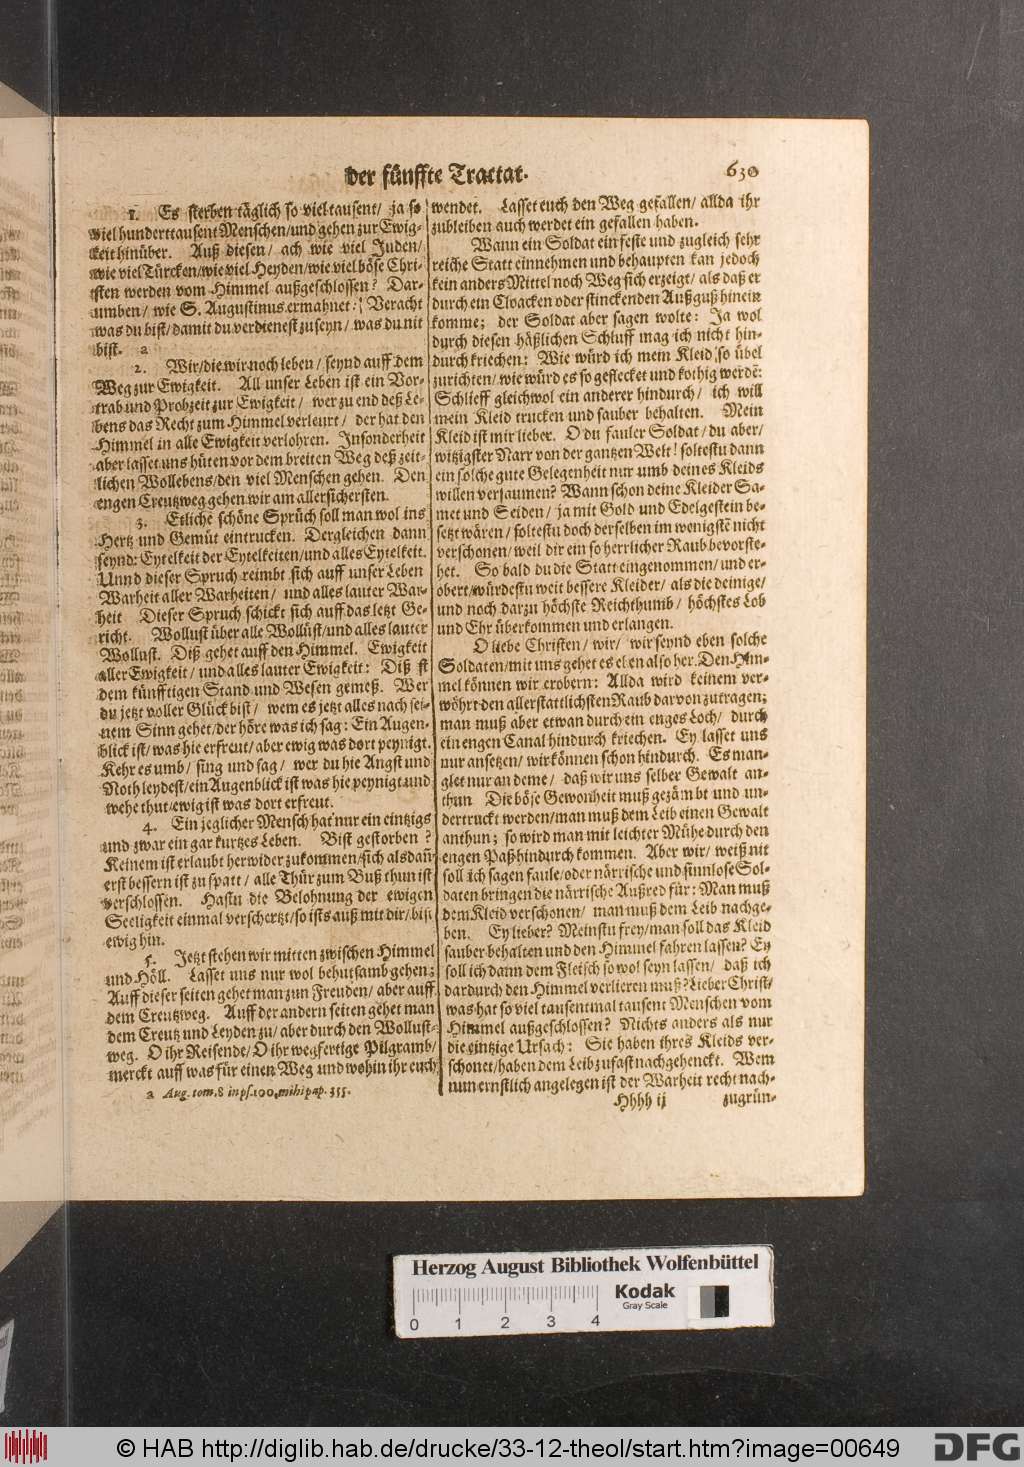 der fünffte Tractat.
630
1. Es sterben täglich so viel tausent/ ja so
viel hunderttausent Menschen/und gehen zur Ewig-
keit hinüber. Auß diesen/ ach wie viel Juden/
wie viel Türcken/wie viel Heyden/wie viel böse Chri-
sten werden vom Himmel außgeschlossen? Dar-
umben/ wie S. Augustinus ermahnet: Veracht
was du bist/damit du verdienest zu seyn/ was du nit
bist. a
2. Wir/die wir noch leben/ seynd auff dem
Weg zur Ewigkeit. All unser Leben ist ein Vor-
trab und Probzeit zur Ewigkeit/ wer zu end deß Le-
bens das Recht zum Himmel verleurt/ der hat den
Himmel in alle Ewigkeit verlohren. Insonderheit
aber lasset uns hüten vor dem breiten Weg deß zeit-
lichen Wollebens/den viel Menschen gehen. Den
engen Creutzweg gehen wir am allersichersten.
3. Etliche schöne Sprüch soll man wol ins
Hertz und Gemüt eintrucken. Dergleichen dann
seynd: Eytelkeit der Eytelkeiten/und alles Eytelkeit.
Unnd dieser Spruch reimbt sich auff unser Leben
Warheit aller Warheiten/ und alles lauter War-
heit Dieser Spruch schickt sich auff das letzt Ge-
richt. Wollust über alle Wollüst/und alles lauter
Wollust. Diß gehet auff den Himmel. Ewigkeit
aller Ewigkeit/ und alles lauter Ewigkeit: Diß st
dem künfftigen Stand und Wesen gemeß. Wer
du jetzt voller Glück bist/ wem es jetzt alles nach sei-
nem Sinn gehet/der höre was ich sag: Ein Augen-
blick ist/was hie erfreut/aber ewig was dort peynigt.
Kehr es umb/ sing und sag/ wer du hie Angst und
Noth leydest/ein Augenblick ist was hie peynigt und
wehe thut/ewig ist was dort erfreut.
4. Ein jeglicher Mensch hat nur ein eintzigs
und zwar ein gar kurtzes Leben. Bist gestorben?
Keinem ist erlaubt herwider zukommen/sich alsdañ
erst bessern ist zu spatt/ alle Thür zum Buß thun ist
verschlossen. Hastu die Belohnung der ewigen
Seeligkeit einmal verschertzt/so ists auß mit dir/ biß
ewig hin.
5. Jetzt stehen wir mitten zwischen Himmel
und Höll. Lasset uns nur wol behutsamb gehen;
Auff dieser seiten gehet man zun Freuden/ aber auff
dem Creutzweg. Auff der andern seiten gehet man
dem Creutz und Leyden zu/ aber durch den Wollust-
weg. O ihr Reisende/O ihr wegfertige Pilgramb/
merckt auff was für einen Weg und wohin ihr euch
a Aug. tom. 8 in ps. 100. mihi pap. 355.
wendet. Lasset euch den Weg gefallen/ allda ihr
zubleiben auch werdet ein gefallen haben.
Wann ein Soldat ein feste und zugleich sehr
reiche Statt einnehmen und behaupten kan jedoch
kein anders Mittel noch Weg sich erzeigt/ als daß er
durch ein Cloacken oder stinckenden Außguß hinein
komme; der Soldat aber sagen wolte: Ja wol
durch diesen häßlichen Schluff mag ich nicht hin-
durch kriechen: Wie würd ich mein Kleid so übel
zurichten/ wie würd es so geflecket und kothig werdē:
Schlieff gleichwol ein anderer hindurch/ ich will
mein Kleid trucken und sauber behalten. Mein
Kleid ist mir lieber. O du fauler Soldat/ du aber/
witzigster Narr von der gantzen Welt! soltestu dann
ein solche gute Gelegenheit nur umb deines Kleids
willen versaumen? Wann schon deine Kleider Sa-
met und Seiden/ ja mit Gold und Edelgestein be-
setzt wären/ soltestu doch derselben im wenigstē nicht
verschonen/ weil dir ein so herrlicher Raub bevorste-
het. So bald du die Statt eingenommen/ und er-
obert/würdestu weit bessere Kleider/ als die deinige/
und noch darzu höchste Reichthumb/ höchstes Lob
und Ehr überkommen und erlangen.
O liebe Christen/ wir/ wir seynd eben solche
Soldaten/mit uns gehet es eben also her. Den Him-
mel können wir erobern: Allda wird keinem ver-
wöhrt den allerstattlichsten Raub darvon zutragen;
man muß aber etwan durch ein enges Loch/ durch
ein engen Canal hindurch kriechen. Ey lasset uns
nur ansetzen/ wir können schon hindurch. Es man-
glet nur an deme/ daß wir uns selber Gewalt an-
thun Die böse Gewonheit muß gezämbt und un-
dertruckt werden/man muß dem Leib einen Gewalt
anthun; so wird man mit leichter Mühe durch den
engen Paß hindurch kommen. Aber wir/ weiß nit
soll ich sagen faule/oder närrische und sinnlose Sol-
daten bringen die närrische Außred für: Man muß
dem Kleid verschonen/ man muß dem Leib nachge-
ben. Ey lieber? Meinstu frey/man soll das Kleid
sauber behalten und den Himmel fahren lassen? Ey
soll ich dann dem Fleisch so wol seyn lassen/ daß ich
dardurch den Himmel verlieren muß? Lieber Christ/
was hat so viel tausentmal tausent Menschen vom
Himmel außgeschlossen? Nichts anders als nur
die eintzige Ursach: Sie haben ihres Kleids ver-
schonet/haben dem Leib zu fast nachgehenckt. Wem
nun ernstlich angelegen ist der Warheit recht nach-
Hhhh ij zugrün-
Herzog August Bibliothek Wolfenbüttel
Kodak
Gray Scale
0 1 2 3 4
© HAB http://diglib.hab.de/drucke/33-12-theol/start.htm?image=00649
DFG